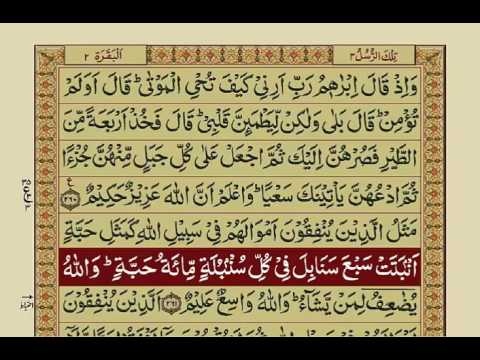 تِلْكَ الرُّسُلُ ٣ اَلْبَقَرَة ٢
وَاِذْ قَالَ اِبْرٰهٖمُ رَبِّ اَرِنِيْ كَيْفَ تُحْيِ الْمَوْتٰىؕ قَالَ اَوَلَمْ
تُؤْمِنْؕ قَالَ بَلٰى وَلٰكِنْ لِّيَطْمَئِنَّ قَلْبِيْؕ قَالَ فَخُذْ اَرْبَعَةً مِّنَ
الطَّيْرِ فَصُرْهُنَّ اِلَيْكَ ثُمَّ اجْعَلْ عَلٰى كُلِّ جَبَلٍ مِّنْهُنَّ جُزْءًا
ثُمَّ ادْعُهُنَّ يَاْتِيْنَكَ سَعْيًاؕ وَاعْلَمْ اَنَّ اللهَ عَزِيْزٌ حَكِيْمٌ ﴿٢٦٠﴾ ع
مَثَلُ الَّذِيْنَ يُنْفِقُوْنَ اَمْوَالَهُمْ فِيْ سَبِيْلِ اللهِ كَمَثَلِ حَبَّةٍ
اَنْۢبَتَتْ سَبْعَ سَنَابِلَ فِيْ كُلِّ سُنْۢبُلَةٍ مِّائَةُ حَبَّةٍؕ وَاللهُ
يُضٰعِفُ لِمَنْ يَّشَآءُؕ وَاللهُ وَاسِعٌ عَلِيْمٌ ﴿٢٦١﴾ اَلَّذِيْنَ يُنْفِقُوْنَ